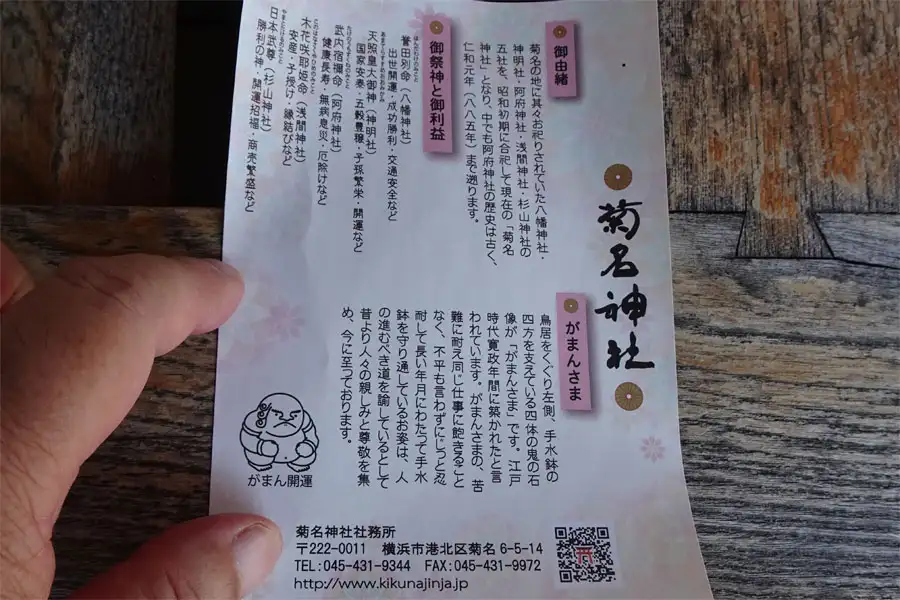 菊名神社
御由緒
菊名の地に其々お祀りされていた八幡神社・
神明社・阿府神社・浅間神社・杉山神社の
五社を、昭和初期に合祀して現在の「菊名
神社」となり、中でも阿府神社の歴史は古く、
仁和元年(八八五年)まで遡ります。
御祭神と御利益
誉田別命(八幡神社)
出世開運・成功勝利・交通安全など
天照皇大御神(神明社)
国家安泰・五穀豊穣・子孫繁栄・開運など
武内宿禰命(阿府神社)
健康長寿・無病息災・厄除けなど
木花咲耶姫命(浅間神社)
安産・子授け・縁結びなど
日本武尊(杉山神社)
勝利の神・開運招福・商売繁盛など
がまんさま
鳥居をくぐり左側、手水鉢の
四方を支えている四体の鬼の石
像が「がまんさま」です。江戸
時代寛政年間に築かれたと言
われています。がまんさまの、苦
難に耐え同じ仕事に飽きること
なく、不平も言わずにじっと忍
耐して長い年月にわたって手水
鉢を守り通しているお姿は、人
の進むべき道を諭しているとして
昔より人々の親しみと尊敬を集
め、今に至っております。
がまん開運
菊名神社社務所
〒222-0011 横浜市港北区菊名 6-5-14
TEL:045-431-9344 FAX:045-431-9972
http://www.kikunajinja.jp